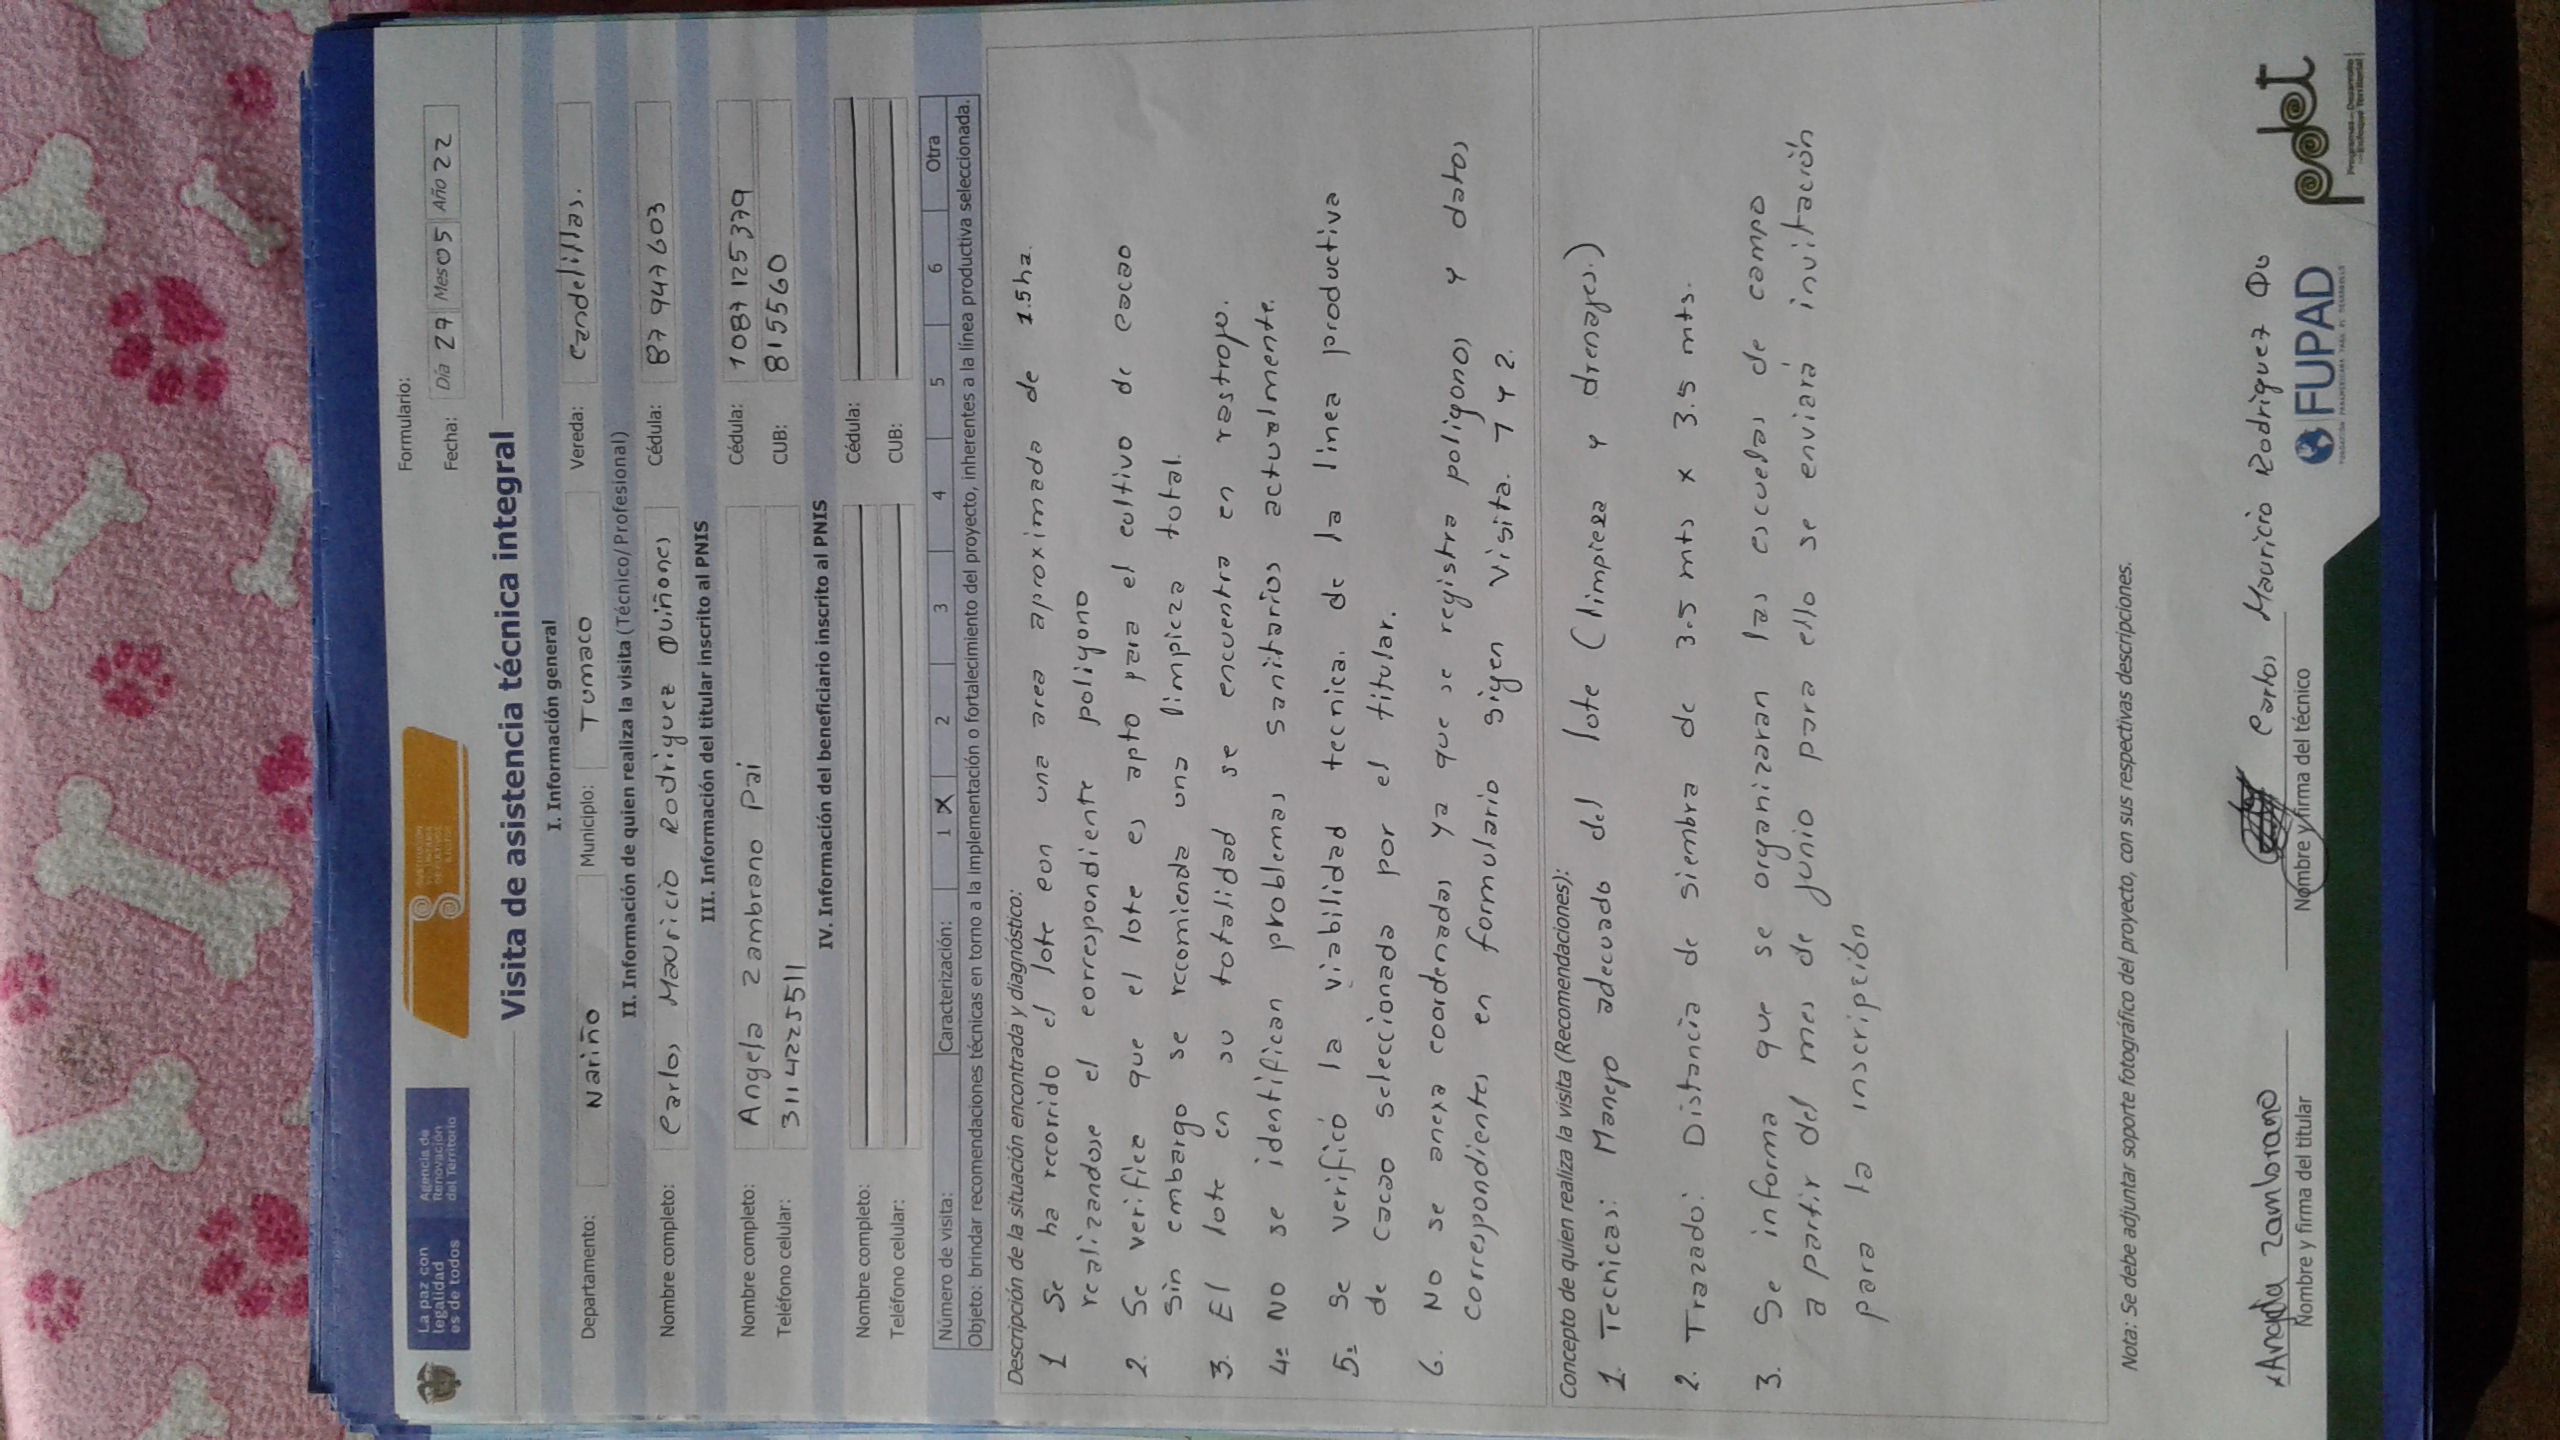 La paz con
legalidad
es de todos
Agencia de
Renovación
del Territorio
Formulario:
Fecha: Día 27 Mes 05 Año 22
Visita de asistencia técnica integral
I. Información general
Departamento: Nariño Municipio: Tumaco Vereda: Candelillas.
II. Información de quien realiza la visita (Técnico/Profesional)
Nombre completo: Carlos Mauricio Rodriguez Quiñones Cédula: 87 947 603
III. Información del titular inscrito al PNIS
Nombre completo: Angela Zambrano Pai Cédula: 1087 125 379
Teléfono celular: 3114225511 CUB: 815560
IV. Información del beneficiario inscrito al PNIS
Nombre completo: Cédula:
Teléfono celular: CUB:
Número de visita: Caracterización: 1 X 2 3 4 5 6 Otra
Objeto: brindar recomendaciones técnicas en torno a la implementación o fortalecimiento del proyecto, inherentes a la línea productiva seleccionada.
Descripción de la situación encontrada y diagnóstico:
1 Se ha recorrido el lote con una area aproximada de 1.5 ha.
realizandose el correspondiente poligono
2. Se verifica que el lote es apto para el cultivo de cacao
sin embargo se recomienda una limpieza total.
3. El lote en su totalidad se encuentra en rastrojo.
4= No se identifican problemas sanitarios actualmente.
5= Se verificó la viabilidad tecnica. de la linea productiva
de cacao seleccionada por el titular.
6. No se anexa coordenadas ya que se registra poligonos y datos
correspondientes en formulario sigen visita. 1 y 2.
Concepto de quien realiza la visita (Recomendaciones):
1. Tecnicas: Manejo adecuado del lote (limpieza y drenajes.)
2. Trazado: Distancia de siembra de 3.5 mts x 3.5 mts.
3. Se informa que se organizaran las escuelas de campo
a partir del mes de junio para ello se enviará invitación
para la inscripción
Nota: Se debe adjuntar soporte fotográfico del proyecto, con sus respectivas descripciones.
x Angela Zambrano
Nombre y firma del titular
Carlos Mauricio Rodriguez
Nombre y firma del técnico
FUPAD
pdet
Programas de Desarrollo
con Enfoque Territorial